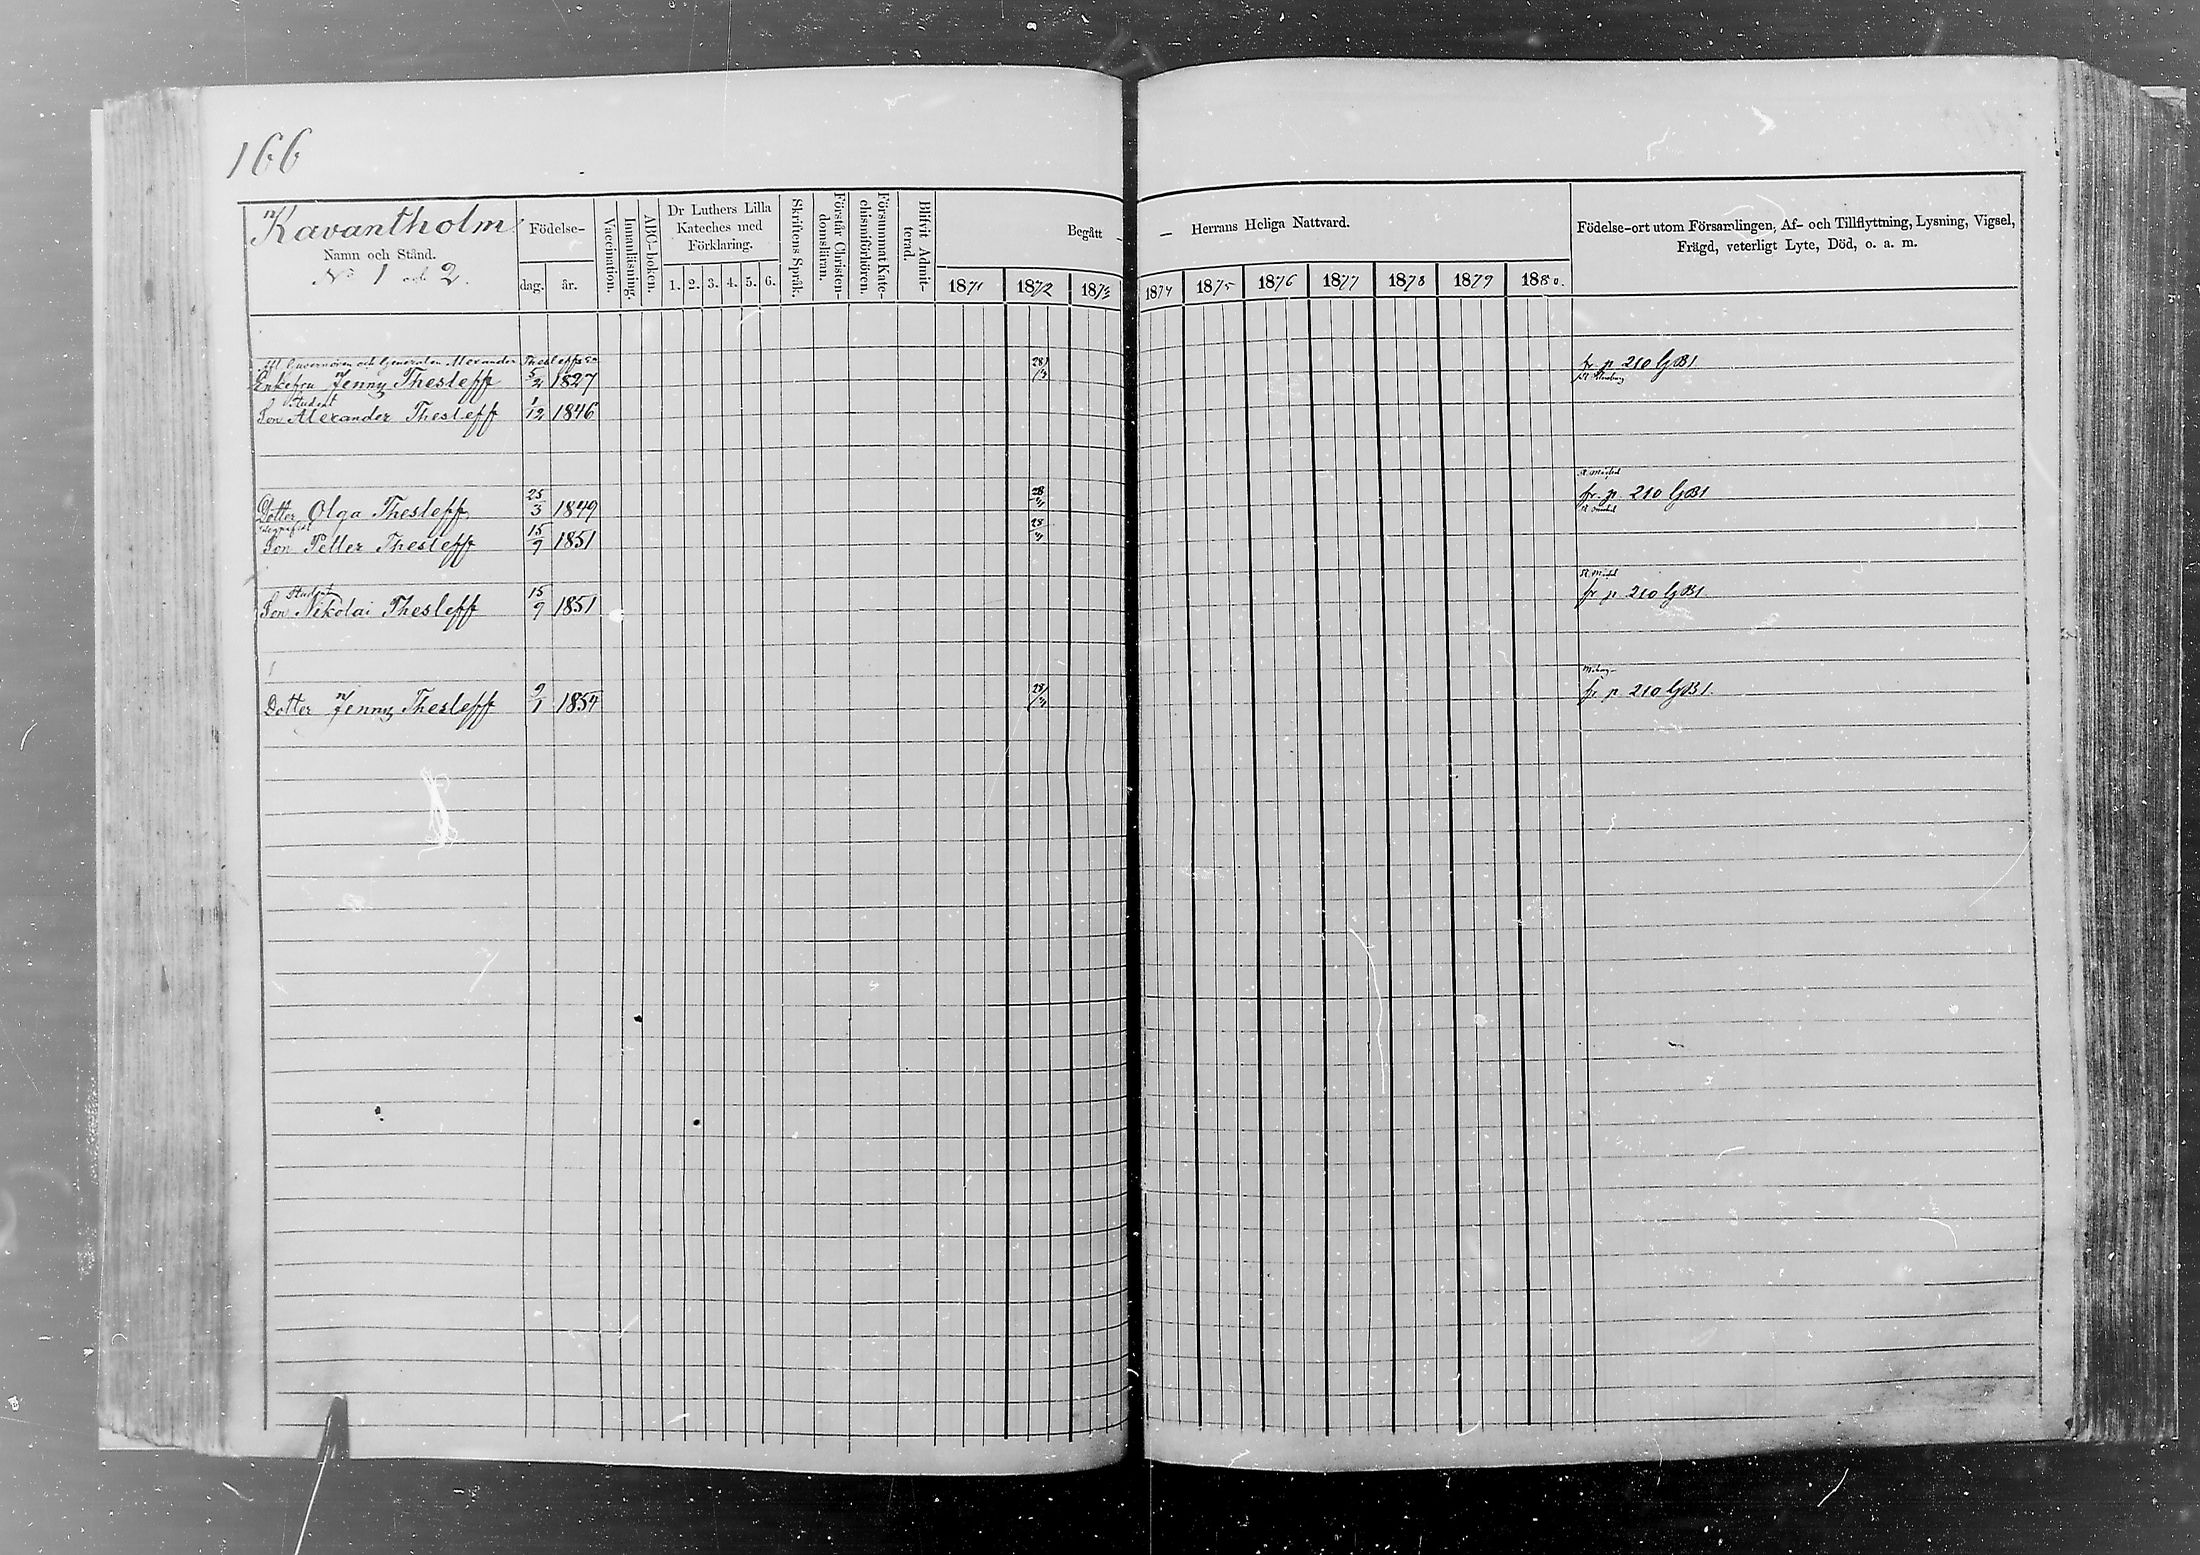 166
Kavantholm
Namn och Stånd.
No 1 och 2.
Födelse-
dag. år.
Vaccination.
Innanläsning.
ABC-boken.
Dr Luthers Lilla
Kateches med
Förklaring.
1. 2. 3. 4. 5. 6.
Skriftens Språk.
Förstår Christen-
domsläran.
Försummat Kate-
chismiförhören.
Blifvit Admit-
terad.
Begått — — Herrans Heliga Nattvard.
1871 1872 1873 1874 1875 1876 1877 1878 1879 1880.
Födelse-ort utom Församlingen, Af- och Tillflyttning, Lysning, Vigsel,
Frägd, veterligt Lyte, Död, o. a. m.
Guvernören och Generalen Alexander Thesleffs
Enkefru Jenny Thesleff 5/2 1827 28/ fr. p. 210 GB1
Student
Son Alexander Thesleff 1/12 1846
Dotter Olga Thesleff 25/3 1849 28/ fr. p. 210 GB1
Son Petter Thesleff 15/9 1851 28/
Student
Son Nikolai Thesleff 15/9 1851 fr p 210 GB1
Dotter Jenny Thesleff 9/1 1854 28/ fr p. 210 GB1.